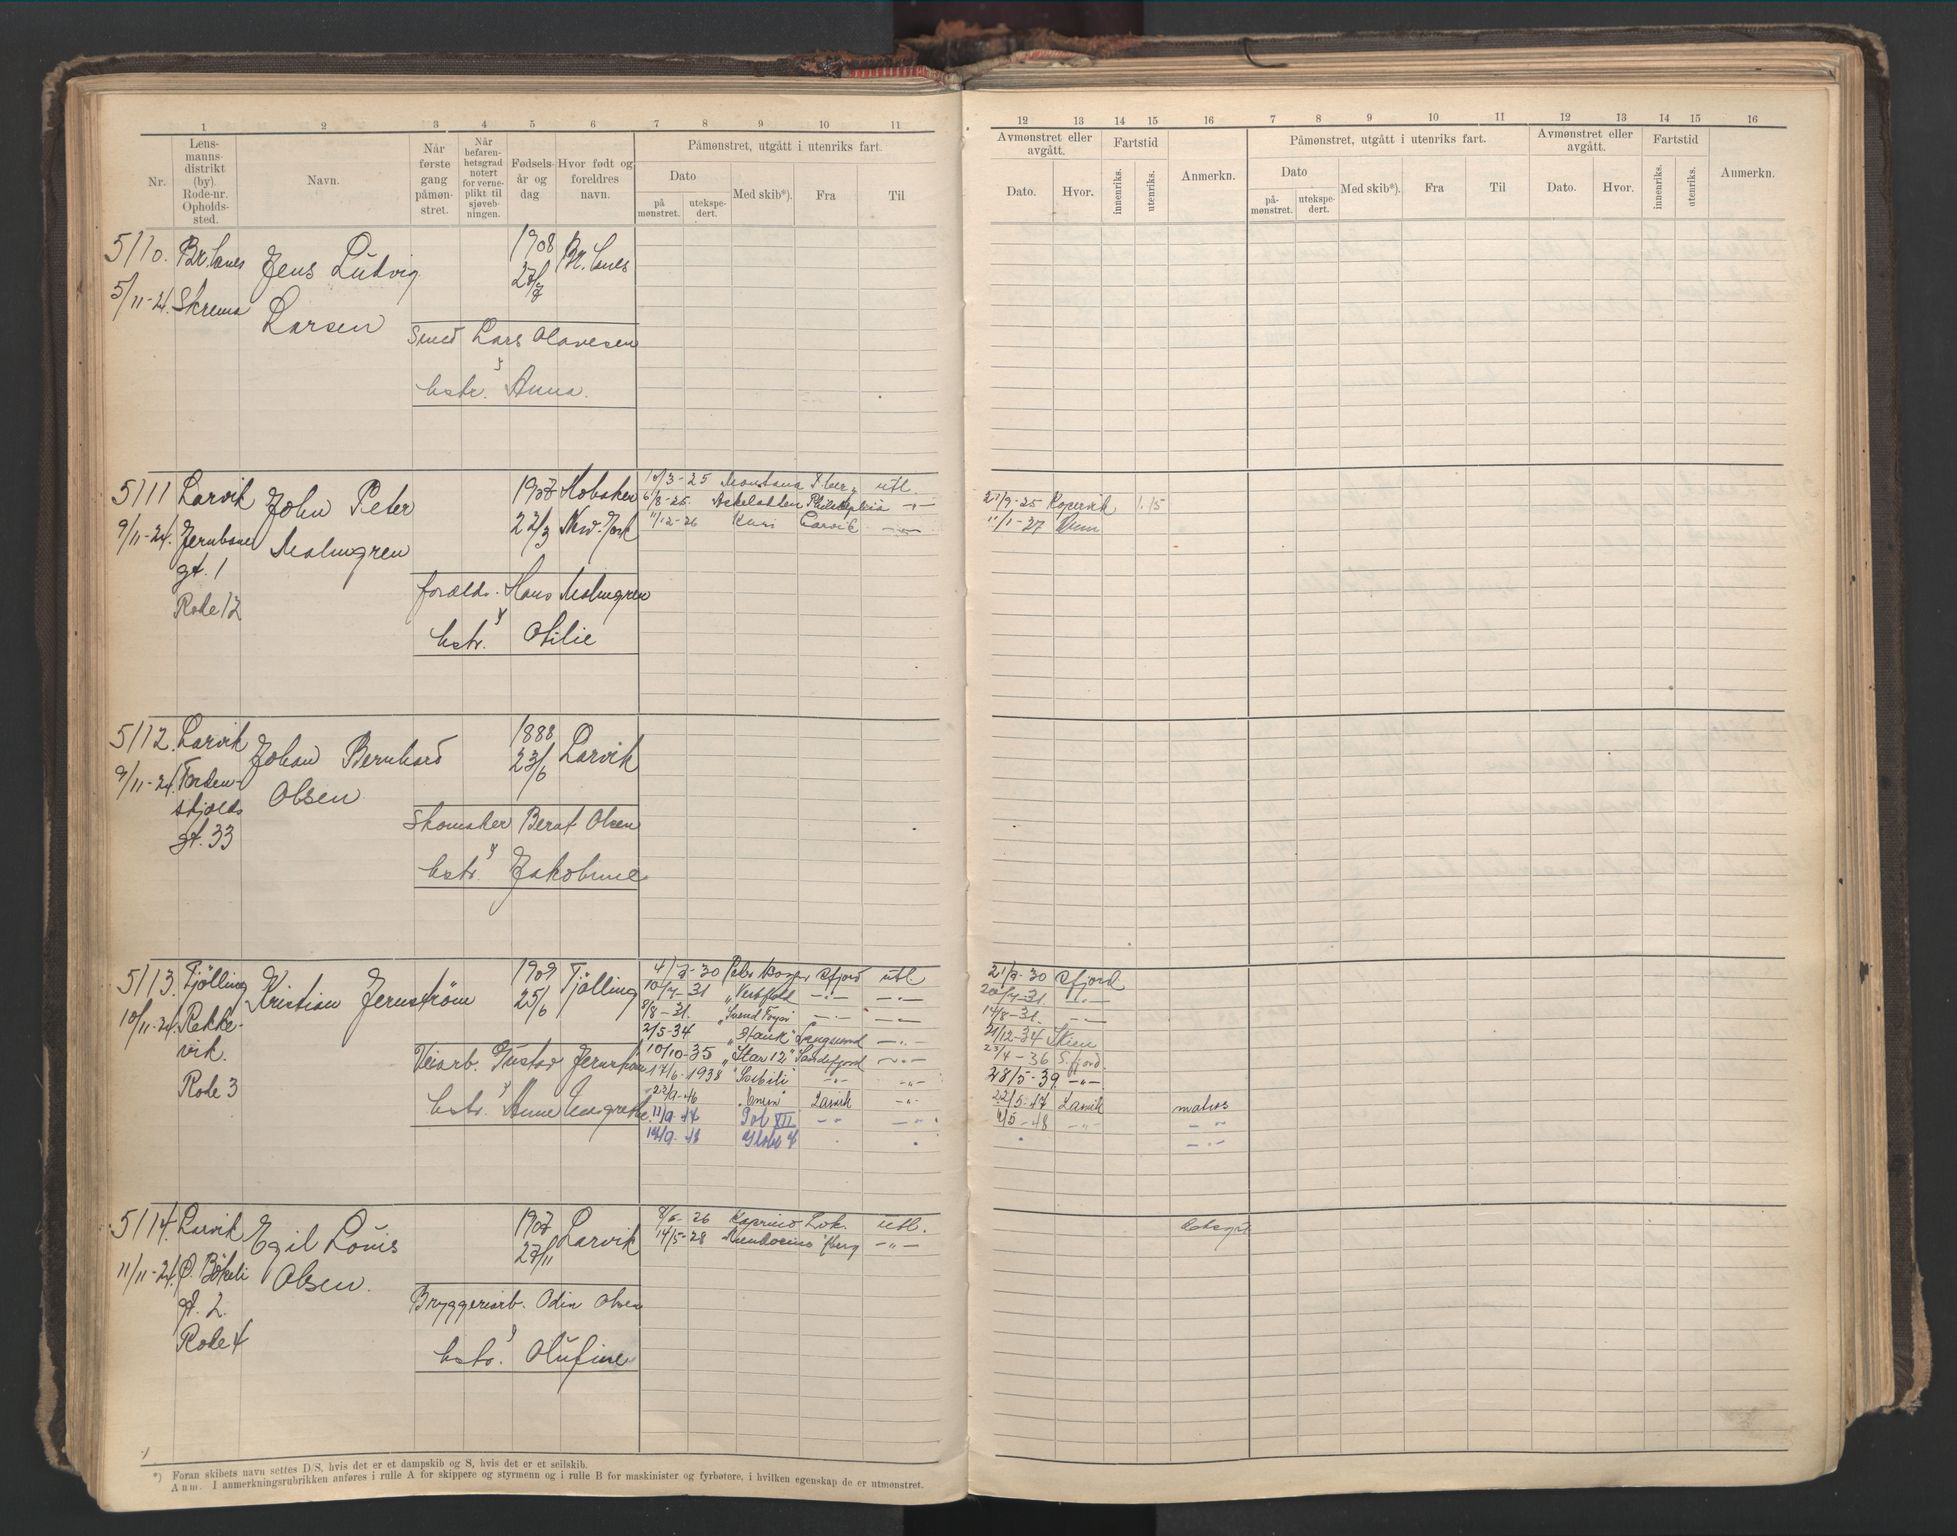 1 2 3 4 5 6 7 8 9 10 11
Nr.
Lens-
manns-
distrikt
(by).
Rode-nr.
Opholds-
sted.
Navn.
Når
første
gang
påmøn-
stret.
Når
befaren-
hetsgrad
notert
for verne-
plikt til
sjøveb-
ningen.
Fødsels-
år og
dag
Hvor født og
foreldres
navn.
Påmønstret, utgått i utenriks fart.
Dato
på
mønstret.
utekspe-
dert.
Med skib*).
Fra
Til
12 13 14 15 16 7 8 9 10 11 12 13 14 15 16
Avmønstret eller
avgått.
Dato.
Hvor.
Fartstid
innenriks.
utenriks.
Anmerkn.
Påmønstret, utgått i utenriks fart.
Dato
på-
mønstret.
utekspe-
dert.
Med skib*).
Fra
Til
Avmønstret eller
avgått.
Dato.
Hvor.
Fartstid
innenriks.
utenriks.
Anmerkn.
5110. Br.lanes Jens Ludvig 1908 Br. lanes
5/11-24. Skrema Larsen 27/7
Smed Lars Olavesen
hstr. Anna.
5111 Larvik John Peter 1907 Hoboken 10/3-25 Montana utl.
9/11-24. Jernbane Malmgren 22/3 New-York 6/8-25 Askeladden Philadelphia -"- 21/9-25 Kopervik 1.15
gt. 1 11/12-26 Kari Larvik -"- 11/1-27
Rode 12
forældr. Hans Malmgren
hstr. Otilie
5112. Larvik Johan Bernhard 1888 Larvik
9/11-24. Torden- Olsen 23/6
skjolds
gt. 33
Skomaker Bernt Olsen
hstr. Jakobine
5113. Tjølling Kristian Jernstrøm 1909 Tjølling 4/7-30 Sfjord utl. 21/7-30 Sfjord
10/11-24. Rekke- 25/6 10/7-31 "Vestfold -"- -"- 20/7-31 -"-
vik. 8/8-31. "Svend Foyn -"- -"- 14/8-31. -"-
Rode 3 2/5-34 "Hauk" Langesund -"- 21/12-34 Skien
Veiarb. Gustav Jernstrøm 10/10-35 "Star 12" Sandefjord -"- 23/4-36 S.fjord.
17/6-1938 "Solbili" -"- -"- 28/5-39. -"-
hstr. Anne Margrethe 22/9-46 Larvik -"- 22/5-47 Larvik matros
11/9-47 Pol XII -"- -"- 4/5-48 -"- -"-
14/9-48 Globe 7 -"-
5114. Larvik Egil Louis 1907 Larvik 8/6-26 utl.
11/11-24. O. Bøkeli Olsen. 27/11 14/5-28 Mendocino -"-
gt. 2.
Rode 4
Bryggeriarb. Odin Olsen
hstr. Olufine
*) Foran skibets navn settes D/S, hvis det er et dampskib og S, hvis det er et seilskib.
Anm. I anmerkningsrubrikken anføres i rulle A for skippere og styrmenn og i rulle B for maskinister og fyrbøtere, i hvilken egenskap de er utmønstret.